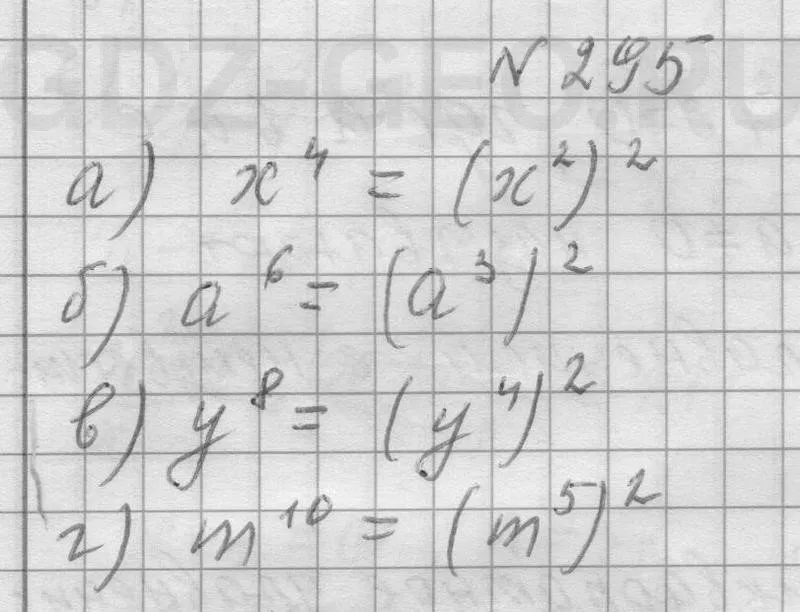 GDZ-GEO.RU
N 295
а) x⁴ = (x²)²
б) a⁶ = (a³)²
в) y⁸ = (y⁴)²
г) m¹⁰ = (m⁵)²